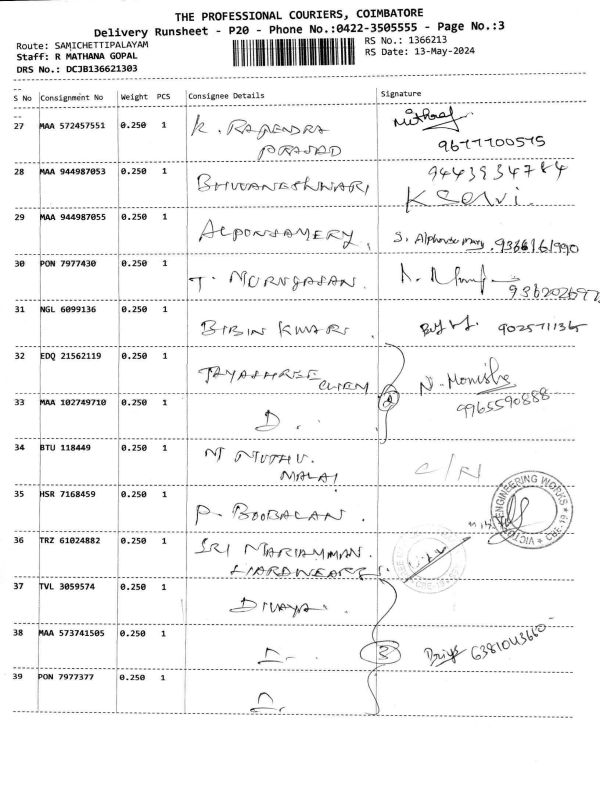 THE PROFESSIONAL COURIERS, COIMBATORE
Delivery Runsheet - P20 - Phone No.:0422-3505555 - Page No.:3
Route: SAMICHETTIPALAYAM
RS No.: 1366213
Staff: R MATHANA GOPAL
RS Date: 13-May-2024
DRS No.: DCJB136621303
S No Consignment No Weight PCS Consignee Details Signature
27 MAA 572457551 0.250 1 K. RAJENDRA
PRASAD 9677700575
28 MAA 944987053 0.250 1 BHUVANESHWARI 9443934784
K Selvi.
29 MAA 944987055 0.250 1 ALPONSAMERY, S. Alphonse mary. 9366161990
30 PON 7977430 0.250 1 T. MURUGASAN.
31 NGL 6099136 0.250 1 BIBIN KUMAR. 9025711365
32 EDQ 21562119 0.250 1 JAYASHREE
CHEM N. Monisha
33 MAA 102749710 0.250 1 D. 2 9965590888-
34 BTU 118449 0.250 1 M MUTHU.
MALAI C/N
35 HSR 7168459 0.250 1 P. BOOBALAN. ENGINEERING WORKS CBE-19
36 TRZ 61024882 0.250 1 SRI MARIAMMAN.
HARDWEARS.
37 TVL 3059574 0.250 1 DIVAYA.
38 MAA 573741505 0.250 1 D. 3 Priya 6381043660-
39 PON 7977377 0.250 1 D.